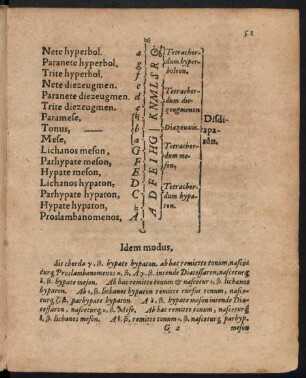 51
Nete hyperbol. a
Paranete hyperbol. g
Trite hyperbol. f
Nete diezeugmen. e
Paranete diezeugmen. d
Trite diezeugmen. c
Paramese, ♮
Tonus, b
Mese, a
Lichanos meson, G
Parhypate meson, F
Hypate meson, E
Lichanos hypaton, D
Parhypate hypaton, C
Hypate hypaton, ♮
Proslambanomenos, A
Tetrachor-
dum hyper-
boleon.
Tetrachor-
dum die-
zeugmenon
Diazeuxis.
Tetrachor-
dum me-
son,
Tetrachor-
dum hypa-
ton.
Disdi-
apa-
sôn.
Idem modus,
Sit chorda γ. ß. hypate hypaton, ab hac remitte tonum, nasce-
turq̃ Proslambanomenos intende Diatessaron, nascetur
hypate meson. Ab hac remitte tonum & nascetur lichanos
hypaton. Ab lichano hypaton remitte rursus tonum, nasce-
turq̃ parhypate hypaton. hypate meson intende Dia-
tessaron, nascetur Mese, Ab hac remitte tonum, nascetur
lichanos meson. remitte tonum nascetur parhyp.
G 2 meson